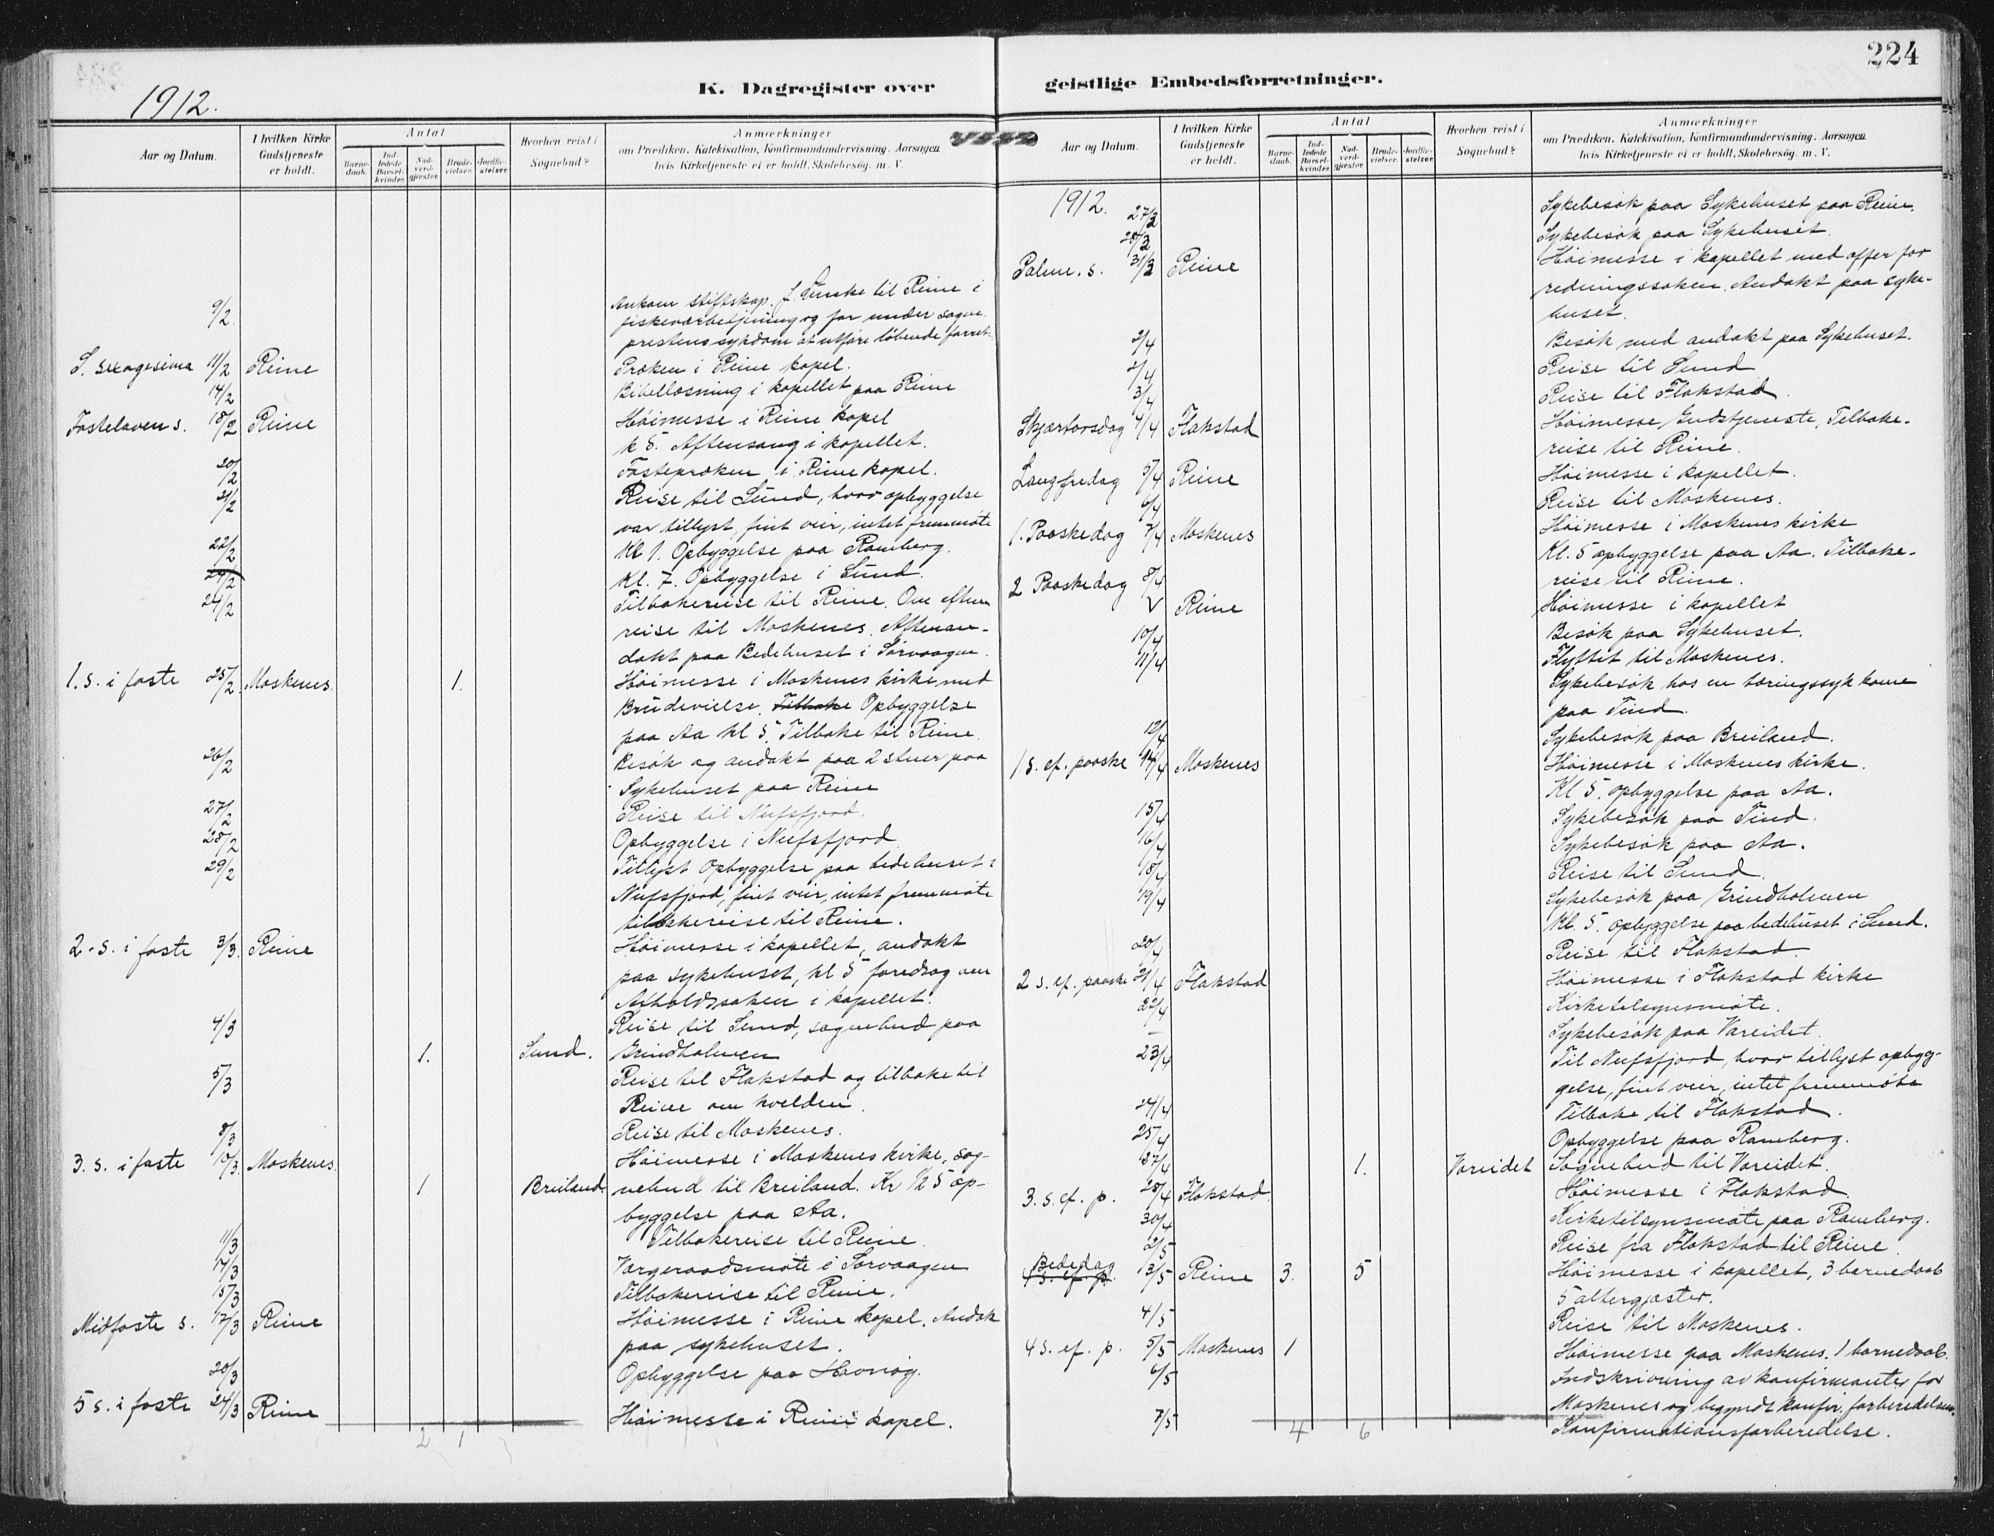 224
K. Dagregister over
geistlige Embedsforretninger.
1912.
Aar og Datum.
I hvilken Kirke Gudstjeneste er holdt.
Antal
Barne-daab.
Ind-ledede Barsel-kvinder.
Nad-verd-gjæster.
Brude-vielser.
Jordfæ-stelser.
Hvorhen reist i Sognebud?
Anmærkninger
om Prædiken, Katekisation, Konfirmandundervisning, Aarsagen
hvis Kirketjeneste ei er holdt, Skolebesøg, m. V.
9/2. Ankom stiftskap. til Reine i
fiskeværbetjening og for under sogne-
prestens sykdom at utføre løbende forret.
S. sexagesima 11/2 Reine Præken i Reine kapel.
14/2 Bibellæsning i kapellet paa Reine
Fastelavens s. 18/2 Reine Høimesse i Reine kapel
k 5. Aftensang i kapellet.
20/2 Fastepræken i Reine kapel.
21/2 Reise til Sund, hvor opbyggelse
var tillyst, fint veir, intet fremmøte
22/2 Kl 1. Opbyggelse paa Ramberg.
Kl. 7. Opbyggelse i Sund.
24/2 Tilbakereise til Reine. Om efterm
reise til Moskenes. Aftenan-
dakt paa Bedehuset i Sørvaagen.
1. s. i faste 25/2 Moskenes. 1. Høimesse i Moskenes kirke med
Brudevielse. Tilbake Opbyggelse
paa Aa kl 5. Tilbake til Reine.
26/2 Besøk og andakt paa 2 stuer paa
Sykehuset paa Reine
27/2 Reise til Nufsfjord.
28/2 Opbyggelse i Nufsfjord
29/2 Tillyst Opbyggelse paa bedehuset i
Nufsfjord, fint veir, intet fremmøte
tilbakereise til Reine.
2. s. i faste 3/3. Reine Høimesse i kapellet, andakt
paa sykehuset, kl 5 foredrag om
Avholdssaken i kapellet.
4/3 Reise til Sund, sognebud paa
1. Sund. Grindholmen
5/3 Reise til Flakstad og tilbake til
Reine om kvelden.
8/3 Reise til Moskenes.
3. s. i faste 10/3. Moskenes. Høimesse i Moskenes kirke, sog-
1 Breiland. nebud til Breiland. Kr Kl 5 op-
byggelse paa Aa.
11/3 Tilbakereise til Reine.
Værgeraadsmøte i Sørvaagen
15/3 Tilbakereise til Reine.
Midfaste s. 17/3 Reine Høimesse i Reine kapel. Andak
paa sykehuset.
20/3 Opbyggelse paa Havnøy.
5 s. i faste 24/3 Reine Høimesse i Reine kapel.
2 1
Aar og Datum.
I hvilken Kirke Gudstjeneste er holdt.
Antal
Barne-daab.
Ind-ledede Barsel-kvinder.
Nad-verd-gjæster.
Brude-vielser.
Jordfæ-stelser.
Hvorhen reist i Sognebud?
Anmærkninger
om Prædiken, Katekisation, Konfirmandundervisning, Aarsagen
hvis Kirketjeneste ei er holdt, Skolebesøg, m. V.
1912. 27/3 Sykebesøk paa Sykehuset paa Reine.
28/3 Sykebesøk paa Sykehuset.
Palme. s. 31/3 Reine Høimesse i kapellet med offer for
redningssaken. Andakt paa syke-
huset.
2/4 Besøk med andakt paa Sykehuset.
2/4 Reise til Sund
3/4 Reise til Flakstad.
Skjærtorsdag 4/4 Flakstad Høimesse Gudstjeneste, Tilbake-
reise til Reine.
Langfredag 5/4 Reine Høimesse i kapellet.
6/4 Reise til Moskenes.
1. Paaskedag 7/4 Moskenes Høimesse i Moskenes kirke
Kl. 5 opbyggelse paa Aa. Tilbake-
reise til Reine.
2 Paaskedag 8/4 Reine Høimesse i kapellet
10/4 Besøk paa Sykehuset.
11/4 Flyttet til Moskenes.
Sykebesøk hos en tæringssyk kone
paa Tind.
12/4 Sykebesøk paa Breiland.
1 s. ef. paaske 14/4 Moskenes Høimesse i Moskenes kirke.
Kl 5. opbyggelse paa Aa.
15/4 Sykebesøk paa Tind.
16/4 Sykebesøk paa Aa.
18/4 Reise til Sund.
19/4 Sykebesøk paa Grindholmen
Kl. 5. opbyggelse paa bedehuset i Sund.
20/4 Reise til Flakstad.
2 s. ef. paaske 21/4 Flakstad Høimesse i Flakstad kirke
22/4 Kirketilsynsmøte.
Sykebesøk paa Vareidet.
23/4 Til Nufsfjord, hvor tillyst opbyg-
gelse, fint veir, intet fremmøte
24/4 Tilbake til Flakstad.
25/4 Opbyggelse paa Ramberg.
27/4 1. Vareidet Sognebud til Vareidet.
3. s. ef. p. 28/4 Flakstad Høimesse i Flakstad.
30/4 Kirketilsynsmøte paa Ramberg.
2/5 Reise fra Flakstad til Reine.
Bededag
4 s. ef p. 3/5 Reine 3. 5 Høimesse i kapellet, 3 barnedaab
5 altergjæster.
4/5 Reise til Moskenes.
4 s. ef. p. 5/5 Moskenes 1 Høimesse paa Moskenes. 1 barnedaab.
6/5 Indskrivning av konfirmanter for
Moskenes og begyndt konfir. forberedelsen.
7/5 Konfirmationsforberedelse.
4 6